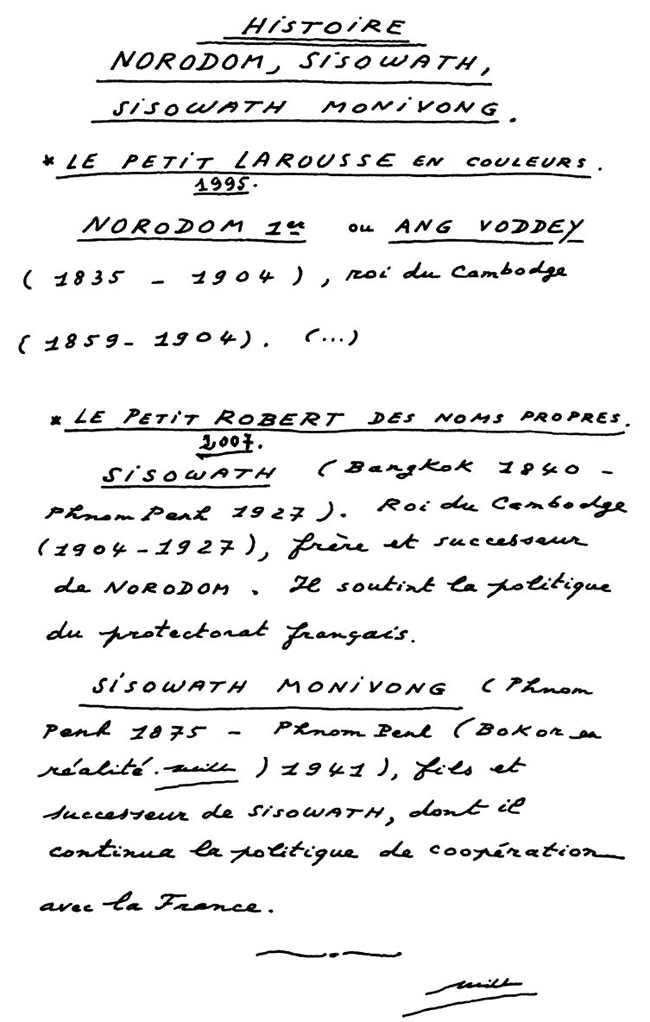 HISTOIRE
NORODOM, SISOWATH,
SISOWATH MONIVONG.
* LE PETIT LAROUSSE EN COULEURS.
1995.
NORODOM 1er ou ANG VODDEY
( 1835 - 1904 ), roi du Cambodge
( 1859- 1904). (...)
* LE PETIT ROBERT DES NOMS PROPRES.
2007.
SISOWATH ( Bangkok 1840 -
Phnom Penh 1927 ). Roi du Cambodge
(1904-1927), frère et successeur
de NORODOM . Il soutint la politique
du protectorat français.
SISOWATH MONIVONG ( Phnom
Penh 1875 - Phnom Penh ( Bokor en
réalité. ) 1941 ), fils et
successeur de SISOWATH, dont il
continua la politique de coopération
avec la France.